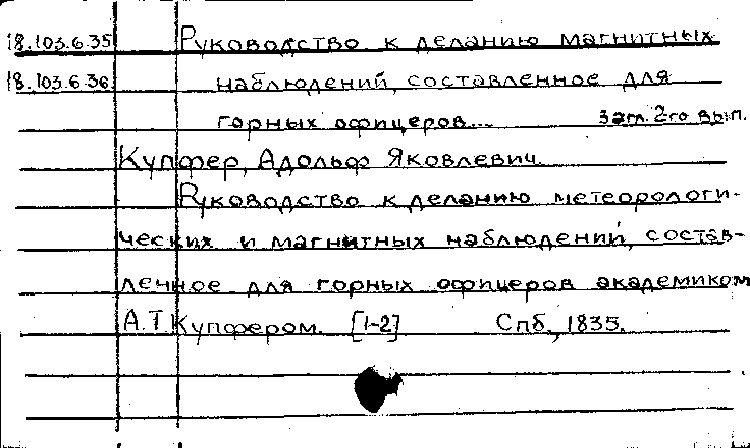 18.103.6.35 Руководство к деланию магнитных
18.103.6.36 наблюдений, составленное для
горных офицеров... загл. 2-го вып.
Купфер, Адольф Яковлевич.
Руководство к деланию метеорологи-
ческих и магнитных наблюдений, состав-
ленное для горных офицеров академиком
А.Т. Купфером. [1-2] Спб., 1835.